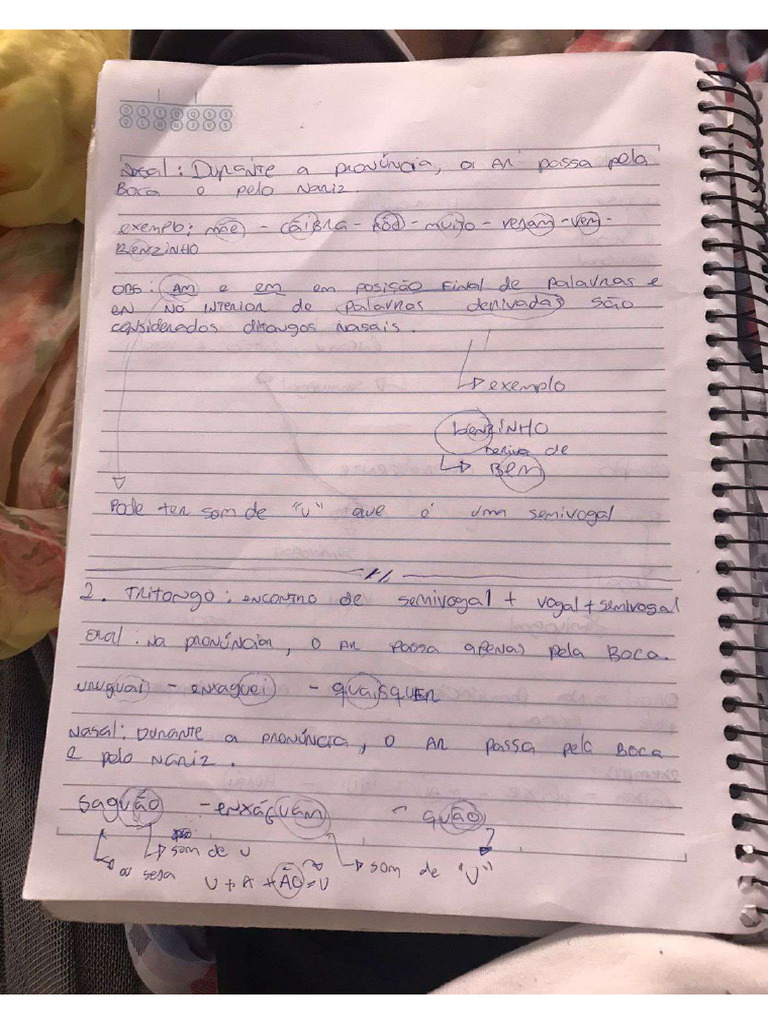 Nasal: Durante a pronúncia, o Ar passa pela
Boca e pelo Nariz.
exemplo: mãe - cãibra - põe - muito - vejam - vem -
Benzinho
OBS: AM e em em posição final de palavras e
en no interior de palavras derivadas são
considerados ditongos nasais.
exemplo
benzinho
deriva de
Bem
Pode ter som de "u" que é uma semivogal
2. Tritongo: encontro de semivogal + vogal + semivogal
Oral: na pronúncia, o Ar passa apenas pela Boca.
uruguai - enxaguei - quaisquer
Nasal: Durante a pronúncia, o Ar passa pela Boca
e pelo Nariz.
saguão - enxáguam - quão
som de u
som de "U"
ou seja
U + A + ÃO = U